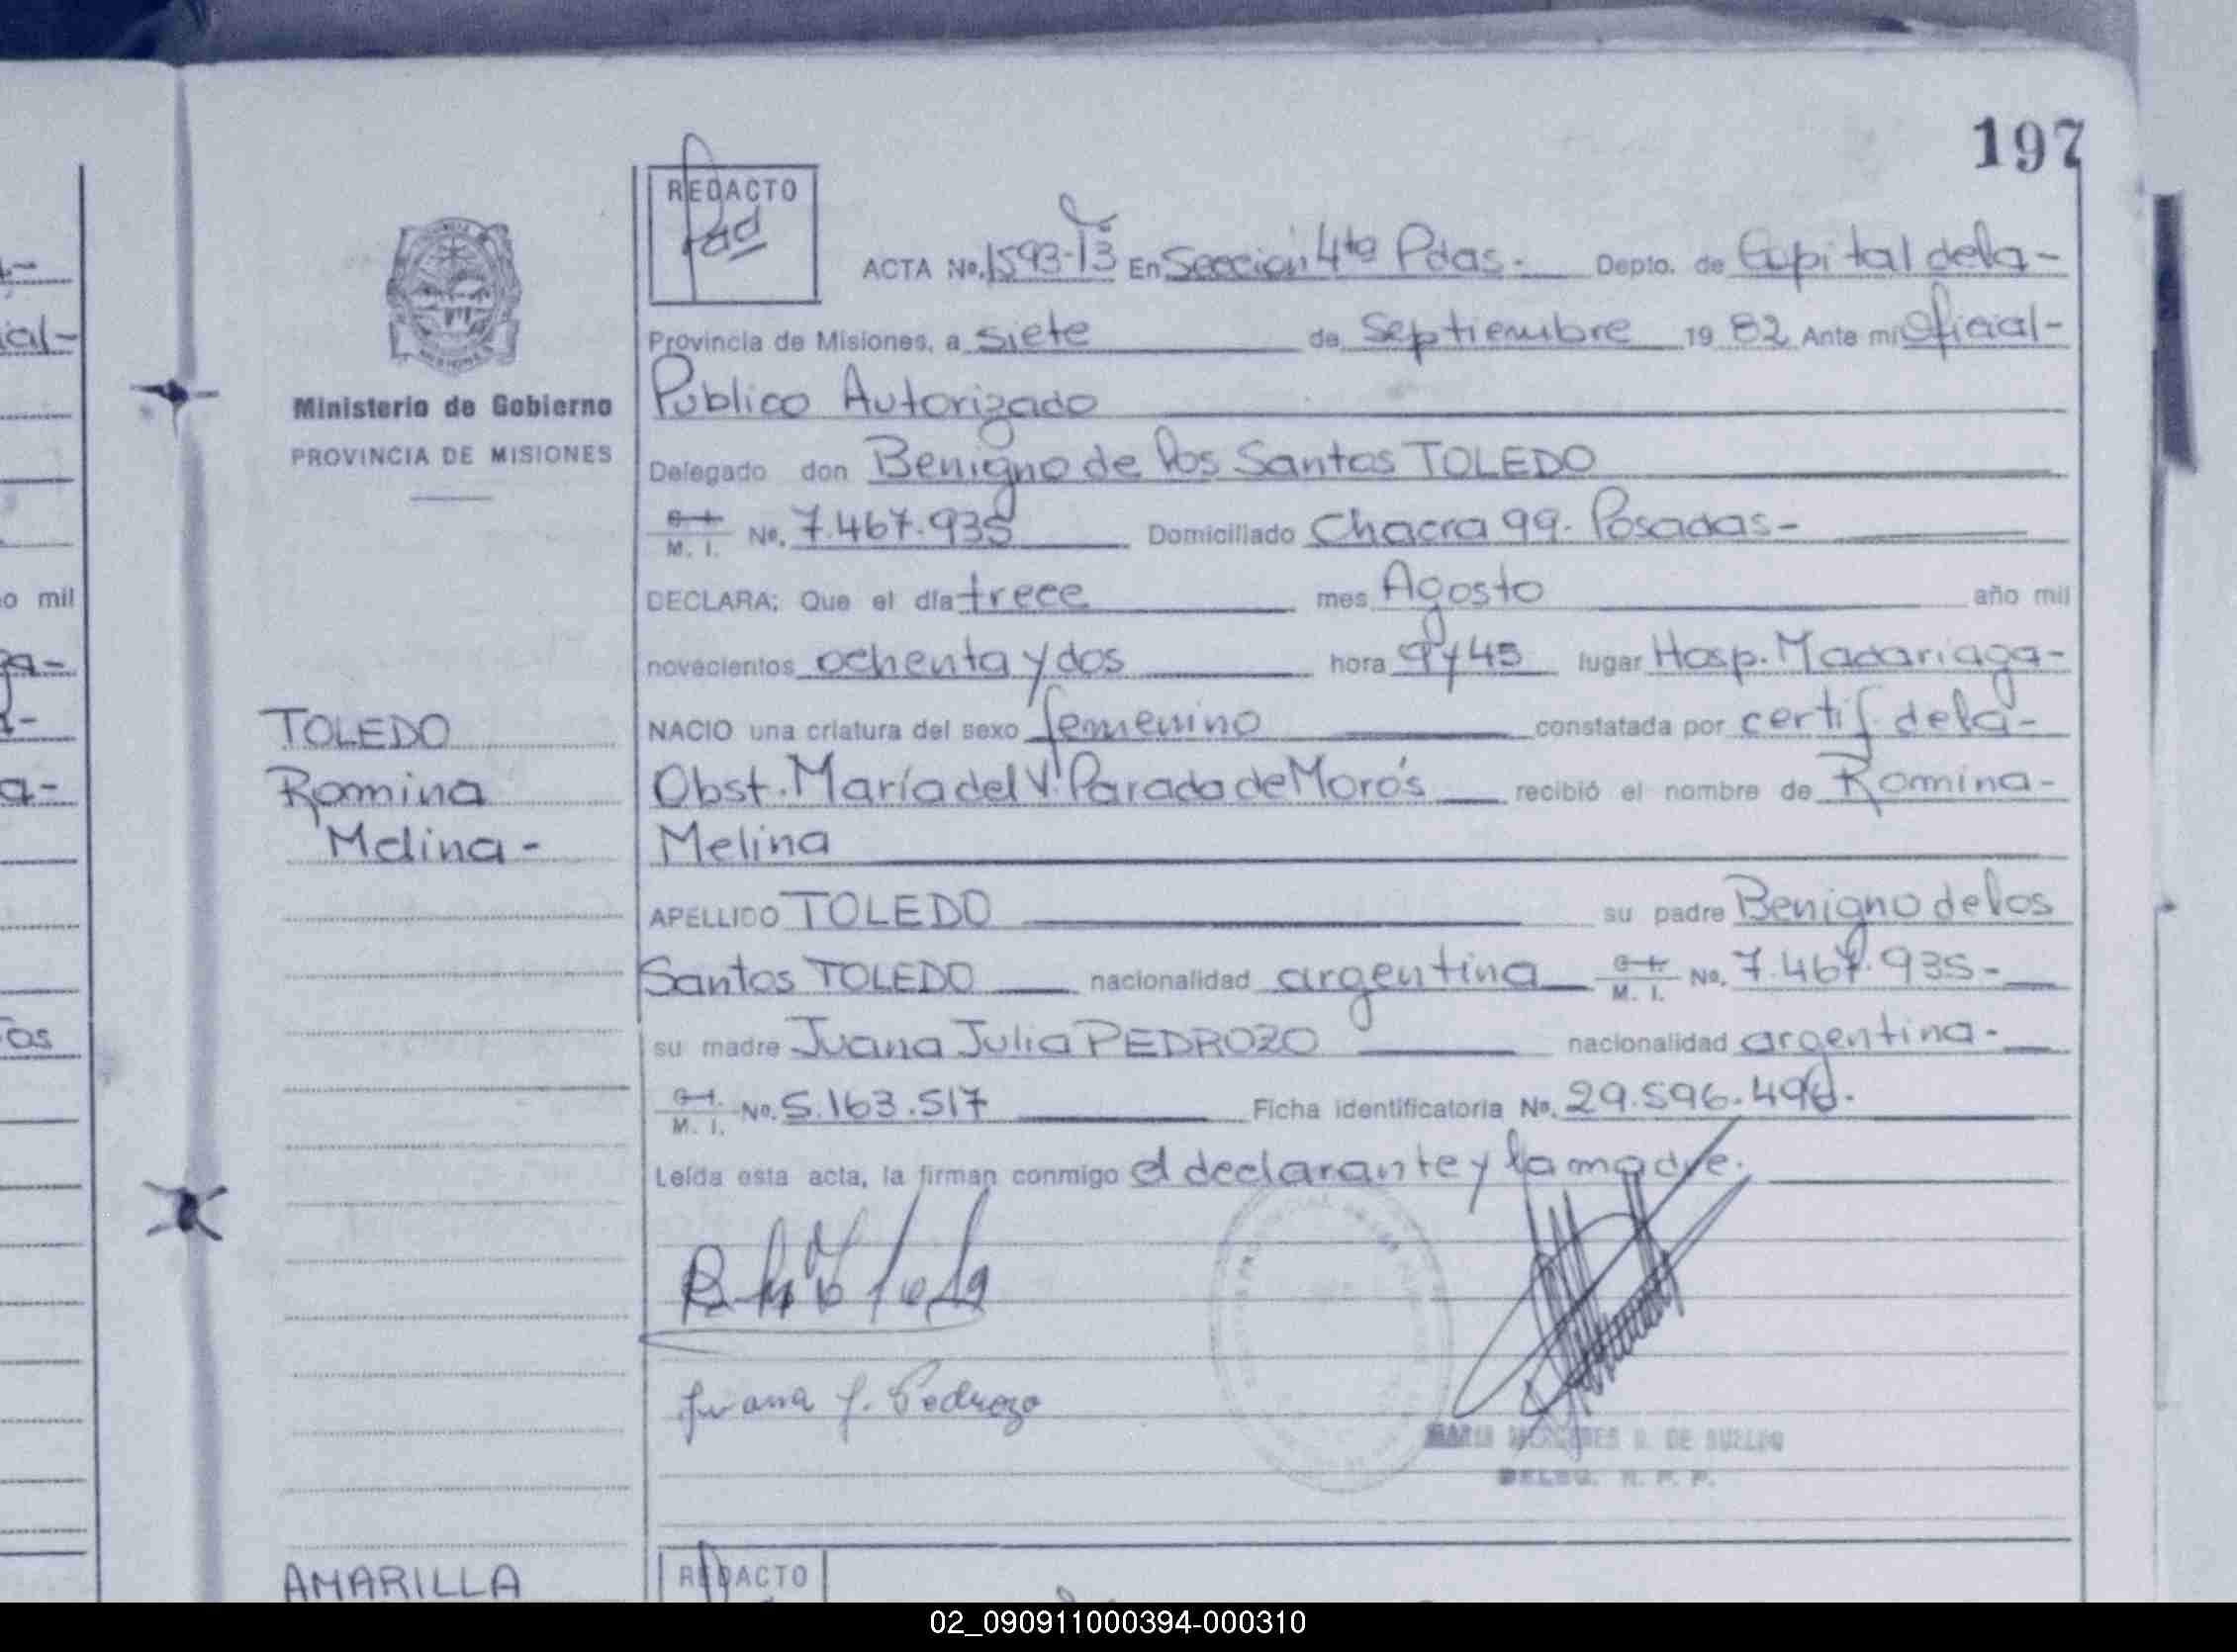 197
REDACTO
ACTA No. 1593-T3 En Sección 4ta Pdas.- Depto. de Capital de la-
Provincia de Misiones, a siete de Septiembre 19 82 Ante mi Oficial-
Ministerio de Gobierno
Público Autorizado
PROVINCIA DE MISIONES
Delegado don Benigno de los Santos TOLEDO
M. I. No. 7.467.935 Domiciliado Chacra 99. Posadas-
DECLARA: Que el día trece mes Agosto año mil
novecientos ochenta y dos hora 9 y 45 lugar Hosp. Madariaga-
NACIO una criatura del sexo femenino constatada por certif. de la-
TOLEDO
Romina
Melina-
Obst. María del V. Parada de Morós recibió el nombre de Romina-
Melina
APELLIDO TOLEDO su padre Benigno de los
Santos TOLEDO nacionalidad argentina M. I. No. 7.467.935-
su madre Juana Julia PEDROZO nacionalidad argentina-
M. I. No. 5.163.517 Ficha identificatoria No. 29.596.496.
Leída esta acta, la firman conmigo el declarante y la madre.
Juana J. Pedrozo
DE
DELEG. R. P. P.
AMARILLA
REDACTO
02_090911000394-000310